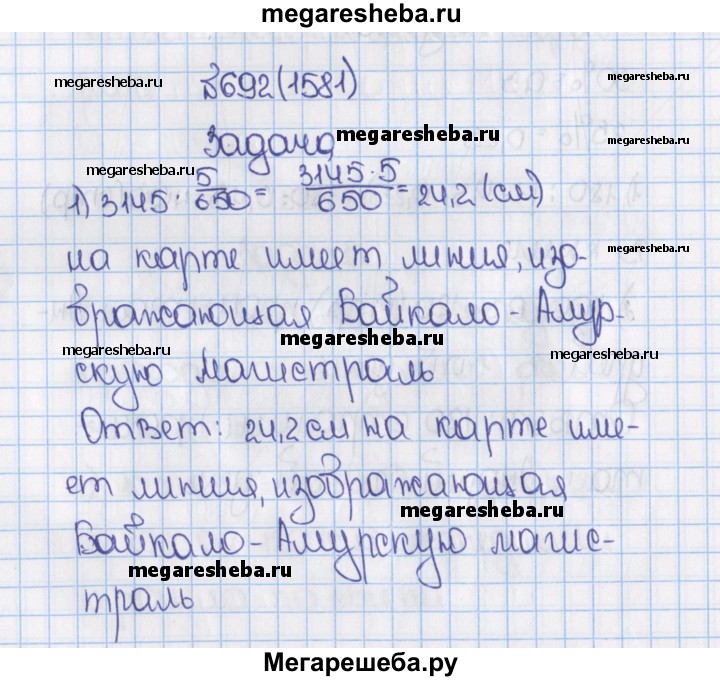 megaresheba.ru
№692(1581)
megaresheba.ru
megaresheba.ru
Задача
megaresheba.ru
megaresheba.ru
megaresheba.ru
1) 3145 · 5/650 = 3145·5/650 = 24,2 (см)
на карте имеет линия, изо-
megaresheba.ru
бражающая Байкало-Амур-
megaresheba.ru
megaresheba.ru
megaresheba.ru
скую магистраль
Ответ: 24,2 см на карте име-
ет линия, изображающая
megaresheba.ru
Байкало-Амурскую магис-
megaresheba.ru
траль
Мегарешеба.ру